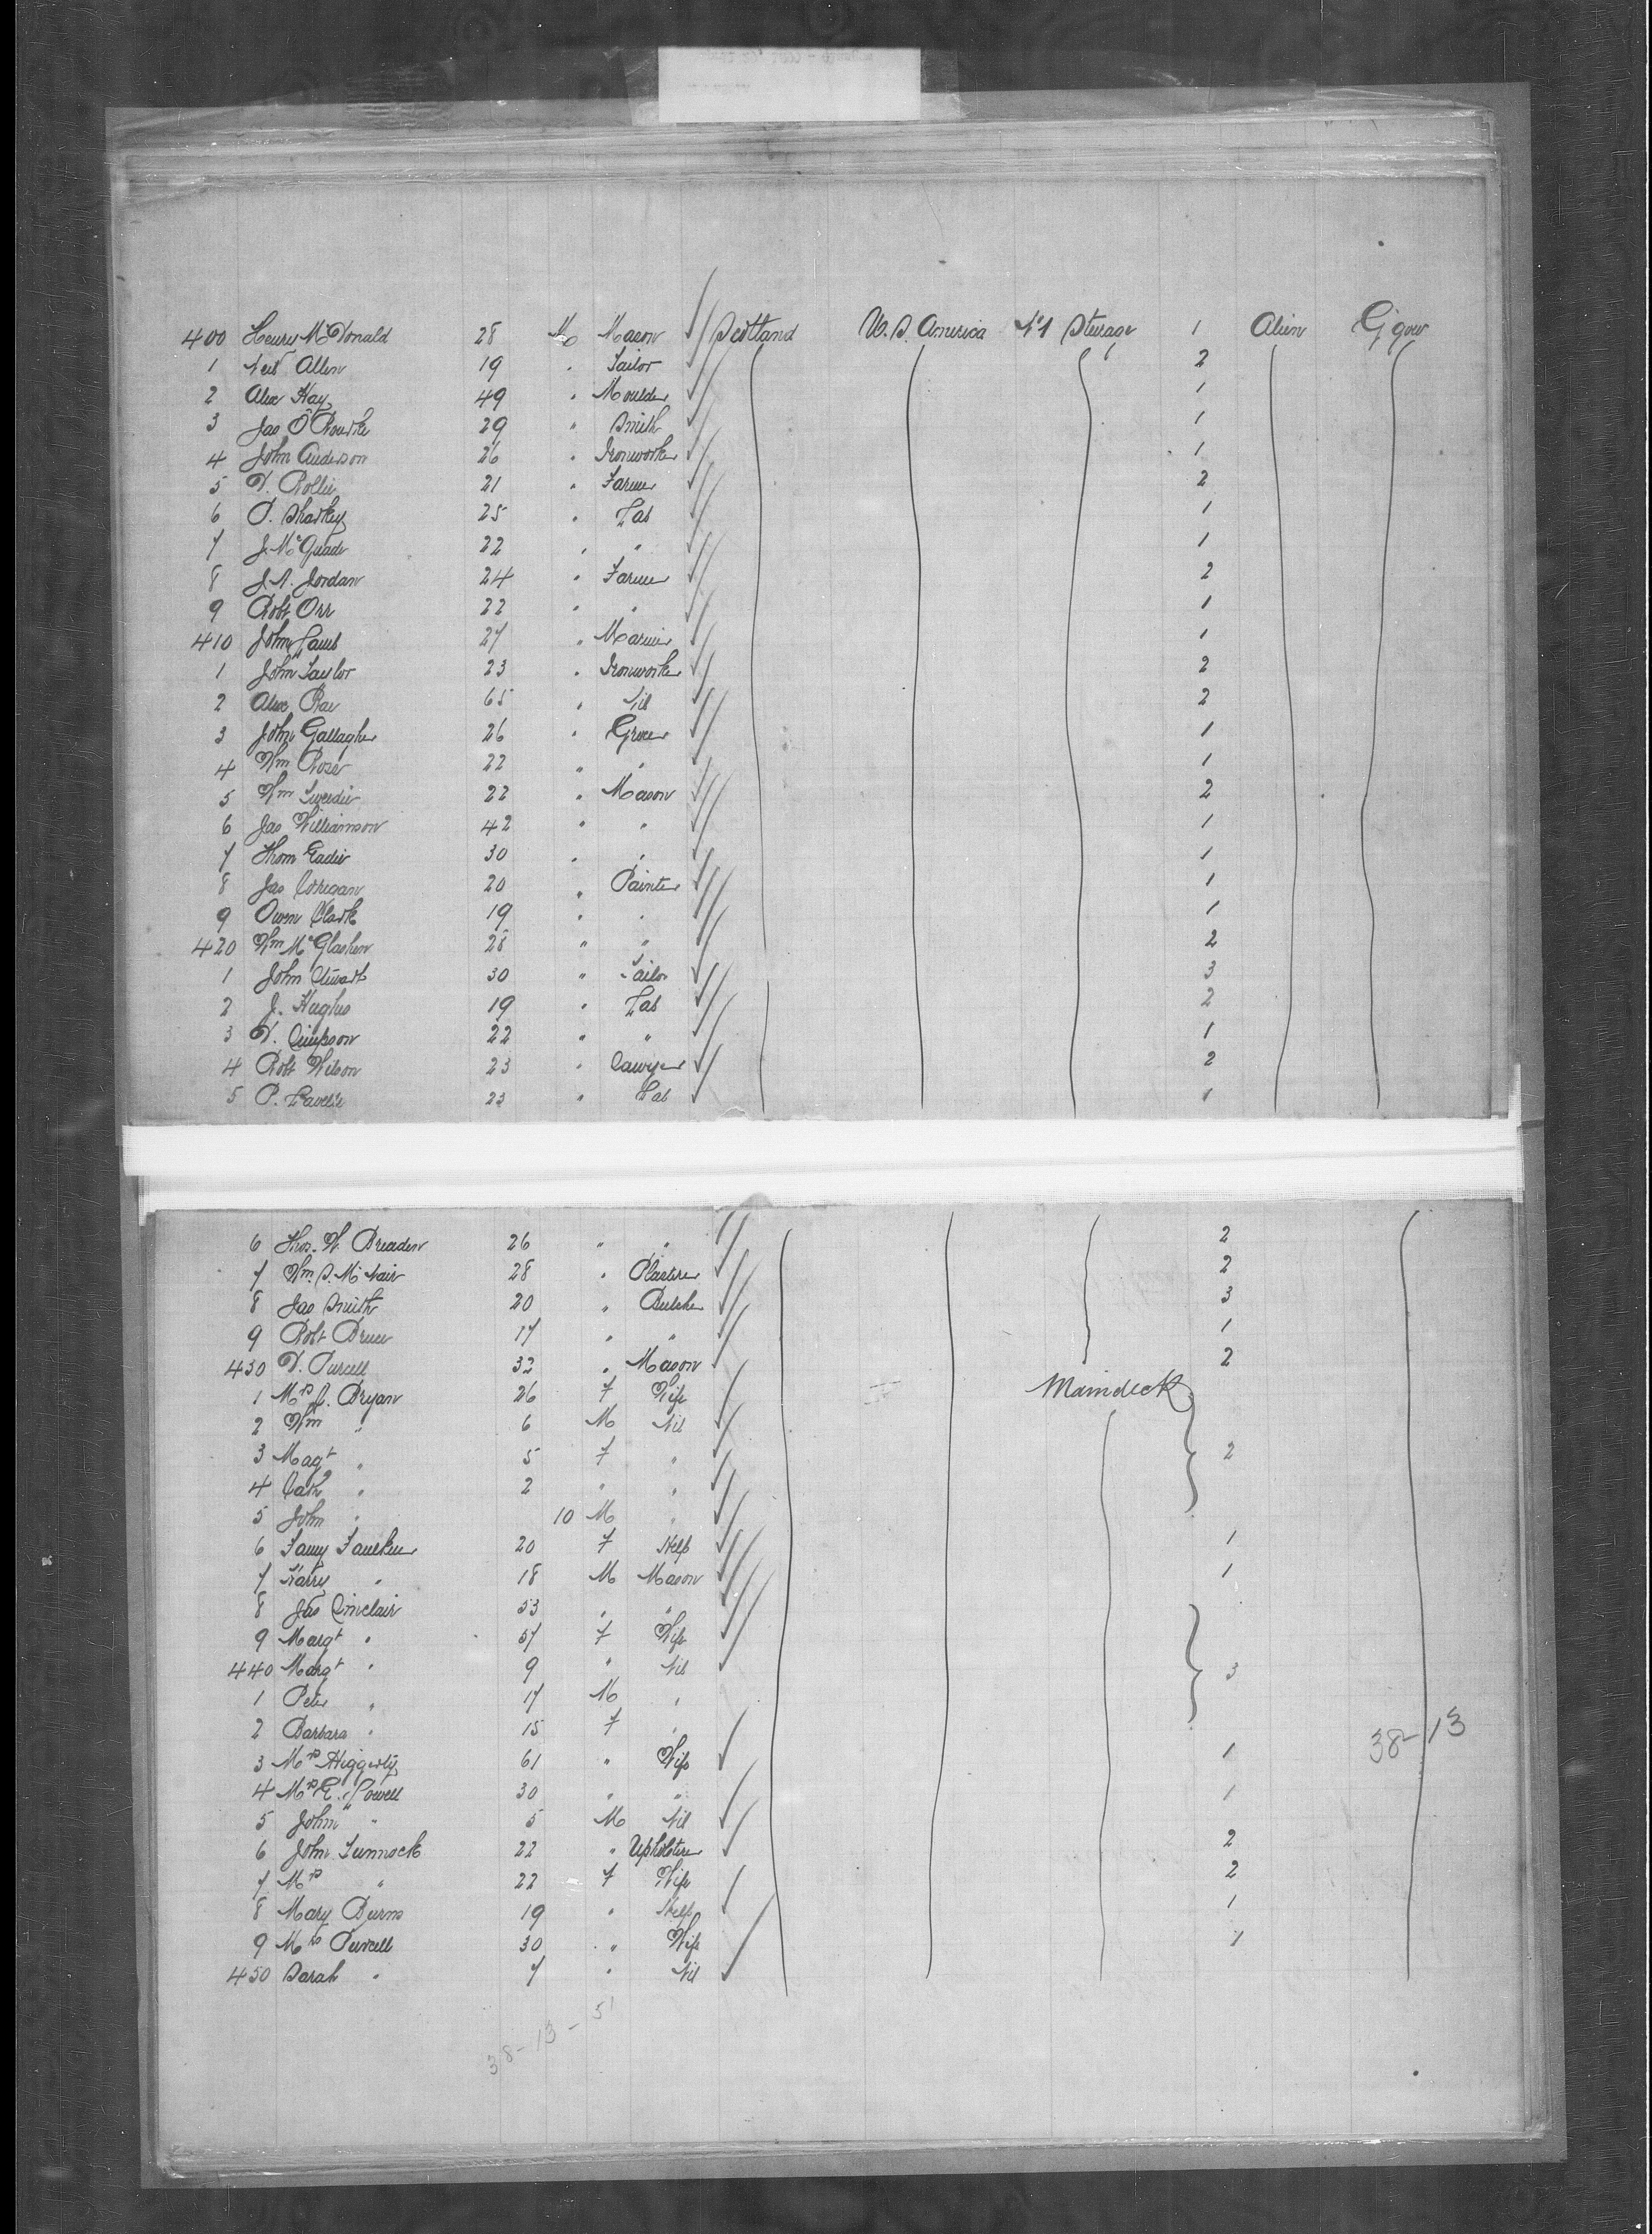 400 Henry McDonald 28 M Mason Scotland U.S. America No 1 Steerage 1 Alien Gl'gow
1 Neil Allen 19 " Sailor 2
2 Alex Hay 49 " Moulder 1
3 Jas O'Rourke 29 " Smith 1
4 John Anderson 26 " Ironworker 1
5 D. Rollie 21 " Farmer 2
6 P. Sharkey 25 " Lab 1
7 J. McQuade 22 " " 1
8 J.A. Jordan 24 " Farmer 2
9 Robt Orr 22 " " 1
410 John Lamb 27 " Mariner 1
1 John Taylor 23 " Ironworker 2
2 Alex Rae 65 " Nil 2
3 John Gallagher 26 " Grocer 1
4 Wm Rose 22 " " 1
5 Wm Tweedie 22 " Mason 2
6 Jas Williamson 42 " " 1
7 Thom Eadie 30 " " 1
8 Jas Corrigan 20 " Painter 1
9 Owen Clark 19 " " 1
420 Wm McGlashen 28 " " 2
1 John Stewart 30 " Tailor 3
2 J. Hughes 19 " Lab 2
3 D. Simpson 22 " " 1
4 Robt Wilson 23 " Sawyer 2
5 P. 23 " Lab 1
6 Thos. W. Breaden 26 " " 2
7 Wm. S. McNair 28 " Plasterer 2
8 Jas Smith 20 " Butcher 3
9 Robt Bruce 17 " " 1
430 D. Purcell 32 " Mason 2
1 Mrs J. Bryan 26 F Wife Maindeck
2 Wm " 6 M Nil
3 Magt " 5 F " 2
4 Cath " 2 " "
5 John " 10 M "
6 Fanny Faulkner 20 F Help 1
7 Harry " 18 M Mason 1
8 Jas Sinclair 53 " "
9 Margt " 57 F Wife
440 Margt " 9 " Nil 3
1 Peter " 17 M "
2 Barbara " 15 F " 38-13
3 Mrs Higgerty 61 " Wife 1
4 Mrs E. Powell 30 " " 1
5 John " 5 M Nil
6 John Tunnock 22 " Upholsterer 2
7 Mrs " 22 F Wife 2
8 Mary Burns 19 " Help 1
9 Mrs Purcell 30 " Wife 1
450 Sarah " 7 " Nil
38-13-51